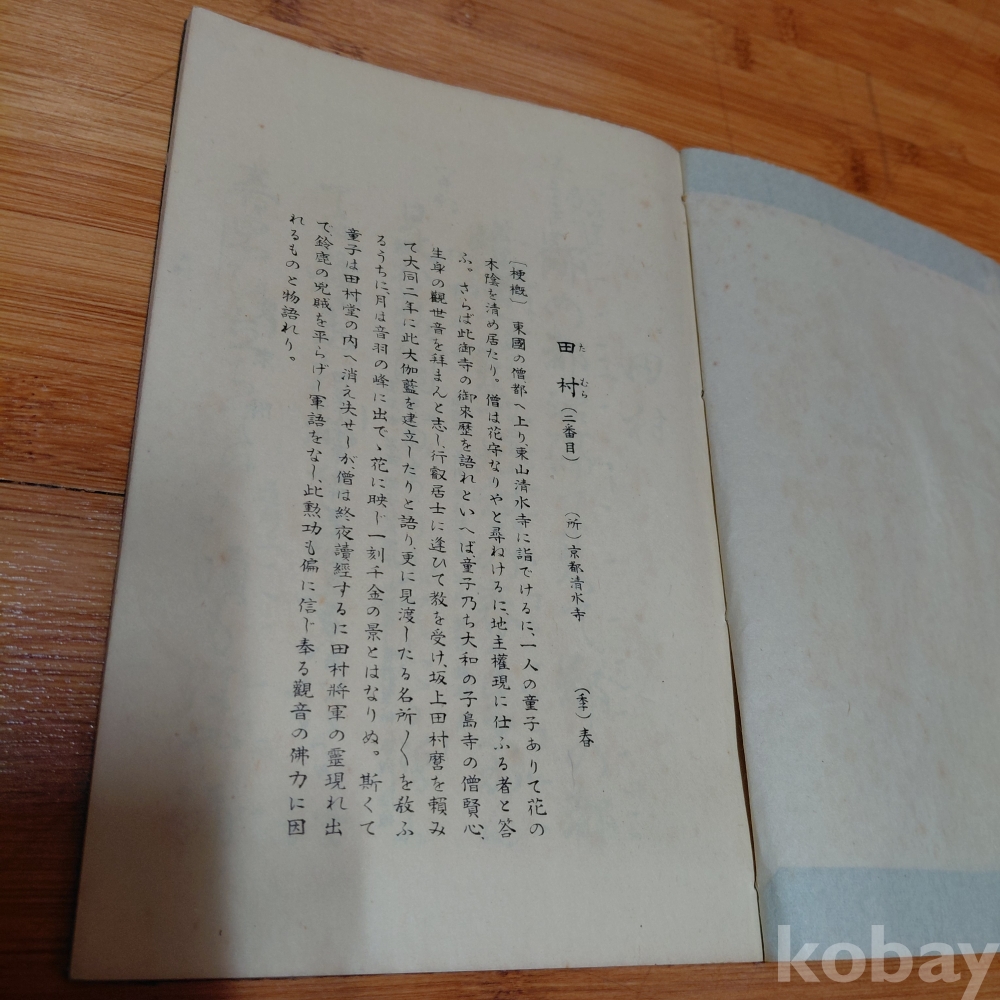 田村（二番目）　（所）京都清水寺　（季）春
たむら
〔梗概〕　東國の僧都へ上り、東山清水寺に詣でけるに、一人の童子ありて花の
木陰を清め居たり。僧は花守なりやと尋ねけるに、地主權現に仕ふる者と答
ふ。さらば此御寺の御來歴を語れといへば、童子乃ち大和の子島寺の僧賢心、
生身の觀世音を拜まんと志し、行叡居士に逢ひて教を受け、坂上田村麿を頼み
て大同二年に此大伽藍を建立したりと語り、更に見渡したる名所〱を教ふ
るうちに、月は音羽の峰に出でゝ花に映じ一刻千金の景とはなりぬ。斯くて
童子は田村堂の内へ消え失せしが、僧は終夜讀經するに田村將軍の靈現れ出
で、鈴鹿の兇賊を平らげし軍語をなし、此勲功も偏に信じ奉る觀音の佛力に因
れるものと物語れり。
kobay